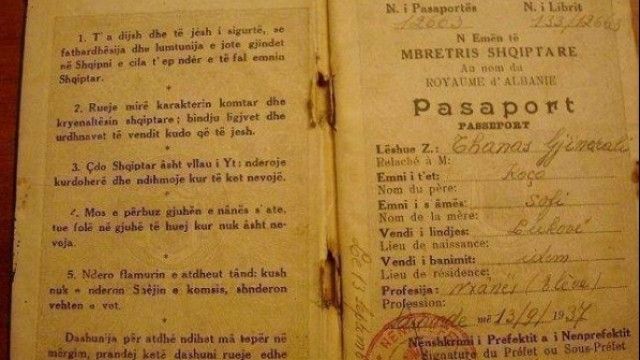 1. T'a dijsh dhe të jesh i sigurtë, se
fatbardhësija dhe lumtunija e jote gjindet
në Shqipni e cila t'ep ndér e të fal emnin
Shqiptar.
*
2. Rueje mirë karakterin komtar dhe
kryenaltësin shqiptare; bindju ligjvet dhe
urdhnavet të vendit kudo që të jesh.
*
3. Çdo Shqiptar âsht vllau i Yt: nderoje
kurdoherë dhe ndihmoje kur të ket nevojë.
*
4. Mos e përbuz gjuhën e nânës s'ate,
tue folë në gjuhë të huej kur nuk âsht ne-
voja.
*
5. Ndero flamurin e atdheut tând: kush
nuk e nderon Shêjin e komsis, shnderon
vehten e vet.
Dashunija për atdhe ndihet mâ tepër në
mërgim, prandej ketë dashuni rueje edhe
N. i Pasaportës
N. i Librit
12603
133/12603
N Emën të
MBRETRIS SHQIPTARE
Au nom du
ROYAUME d'ALBANIE
Pasaport
PASSEPORT
Lëshue Z.: Thanas Gjinarali
Relaché à M:
Emni i t'et: Koço
Nom du père:
Emni i s âmës: Sofi
Nom de la mère:
Vendi i lindjes: Lukovë
Lieu de naissance:
Vendi i banimit:
Lieu de résidence:
Profesija: nxanës (Elève)
Profession:
Sarandë më 13/9/1937
Nënshkromi i Prefektit a i Nenprefektit
Signature du Préfet ou Sous-Préfet